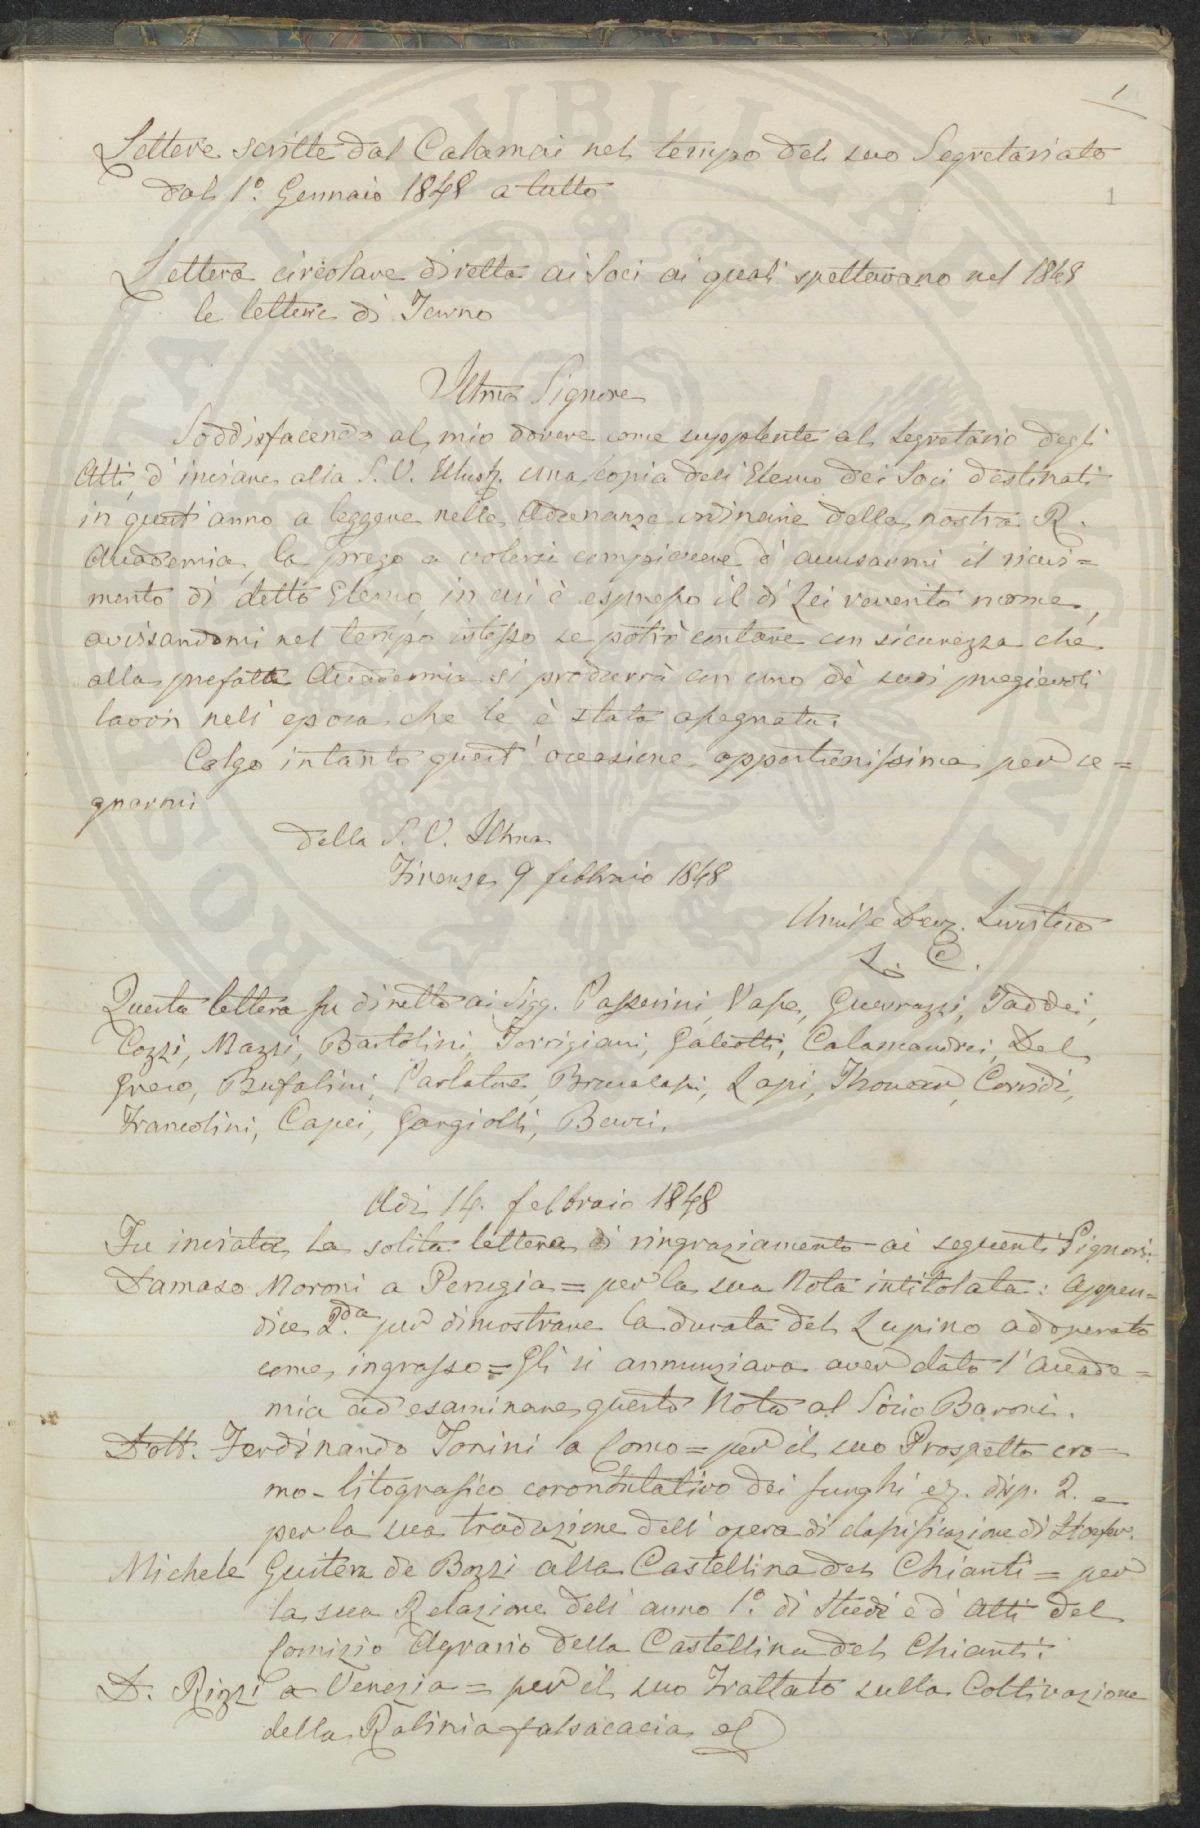 1
Lettere scritte dal Calamai nel tempo del suo Segretariato
dal 1.° Gennaio 1848 a tutto
1
Lettera circolare diretta ai Soci ai quali spettavano nel 1848
le letture di Turno
Illmo Signore
Soddisfacendo al mio dovere come supplente al segretario degli
Atti, d'inviare alla S. V. Illustr. una copia dell'Elenco dei Soci destinati
in quest'anno a leggere nelle Adunanze ordinarie della nostra R.
Accademia, la prego a volersi compiacere d'accusarmi il ricevi=
mento di detto Elenco, in cui è espresso il di Lei reverito nome,
avvisandomi nel tempo istesso se potrò contare con sicurezza che
alla prefatta Accademia si produrrà con uno de' suoi pregievoli
lavori nell'epoca che le è stata assegnata.
Colgo intanto quest'occasione opportunissima per se=
gnarmi
Della S. V. Illma
Firenze 9 febbraio 1848
Umile Dev. Servitore
L. C.
Questa lettera fu diretta ai Sigg. Passerini, Vase, Guerrazzi, Taddei,
Cozzi, Mazzi, Bartolini, Torrigiani, Galeotti, Calamandrei, Del
Greco, Bufalini, Parlatore, Brucalassi, Lapi, Thouar, Corridi,
Francolini, Capei, Gargiolli, Bucci.
Adì 14. febbraio 1848
Fu inviata la solita lettera di ringraziamento ai seguenti Signori:
Damaso Moroni a Perugia = per la sua Nota intitolata: Appen=
dice 2.da per dimostrare la durata del Lupino adoperato
come ingrasso = Gli si annunziava aver dato l'Accade=
mia ad esaminare questa Nota al Socio Baroni.
Dott. Ferdinando Tonini a Como = per il suo Prospetto cro=
mo-litografico dei funghi ez. disp. 2. e
per la sua traduzione dell'opera di classificazione di Hoefer.
Michele Guitera de Bozzi alla Castellina del Chianti = per
la sua Relazione dell'anno 1.° di Studi e d'Atti del
Comizio Agrario della Castellina del Chianti.
D. Rizzi a Venezia = per il suo Trattato sulla Coltivazione
della Robinia falsacacia